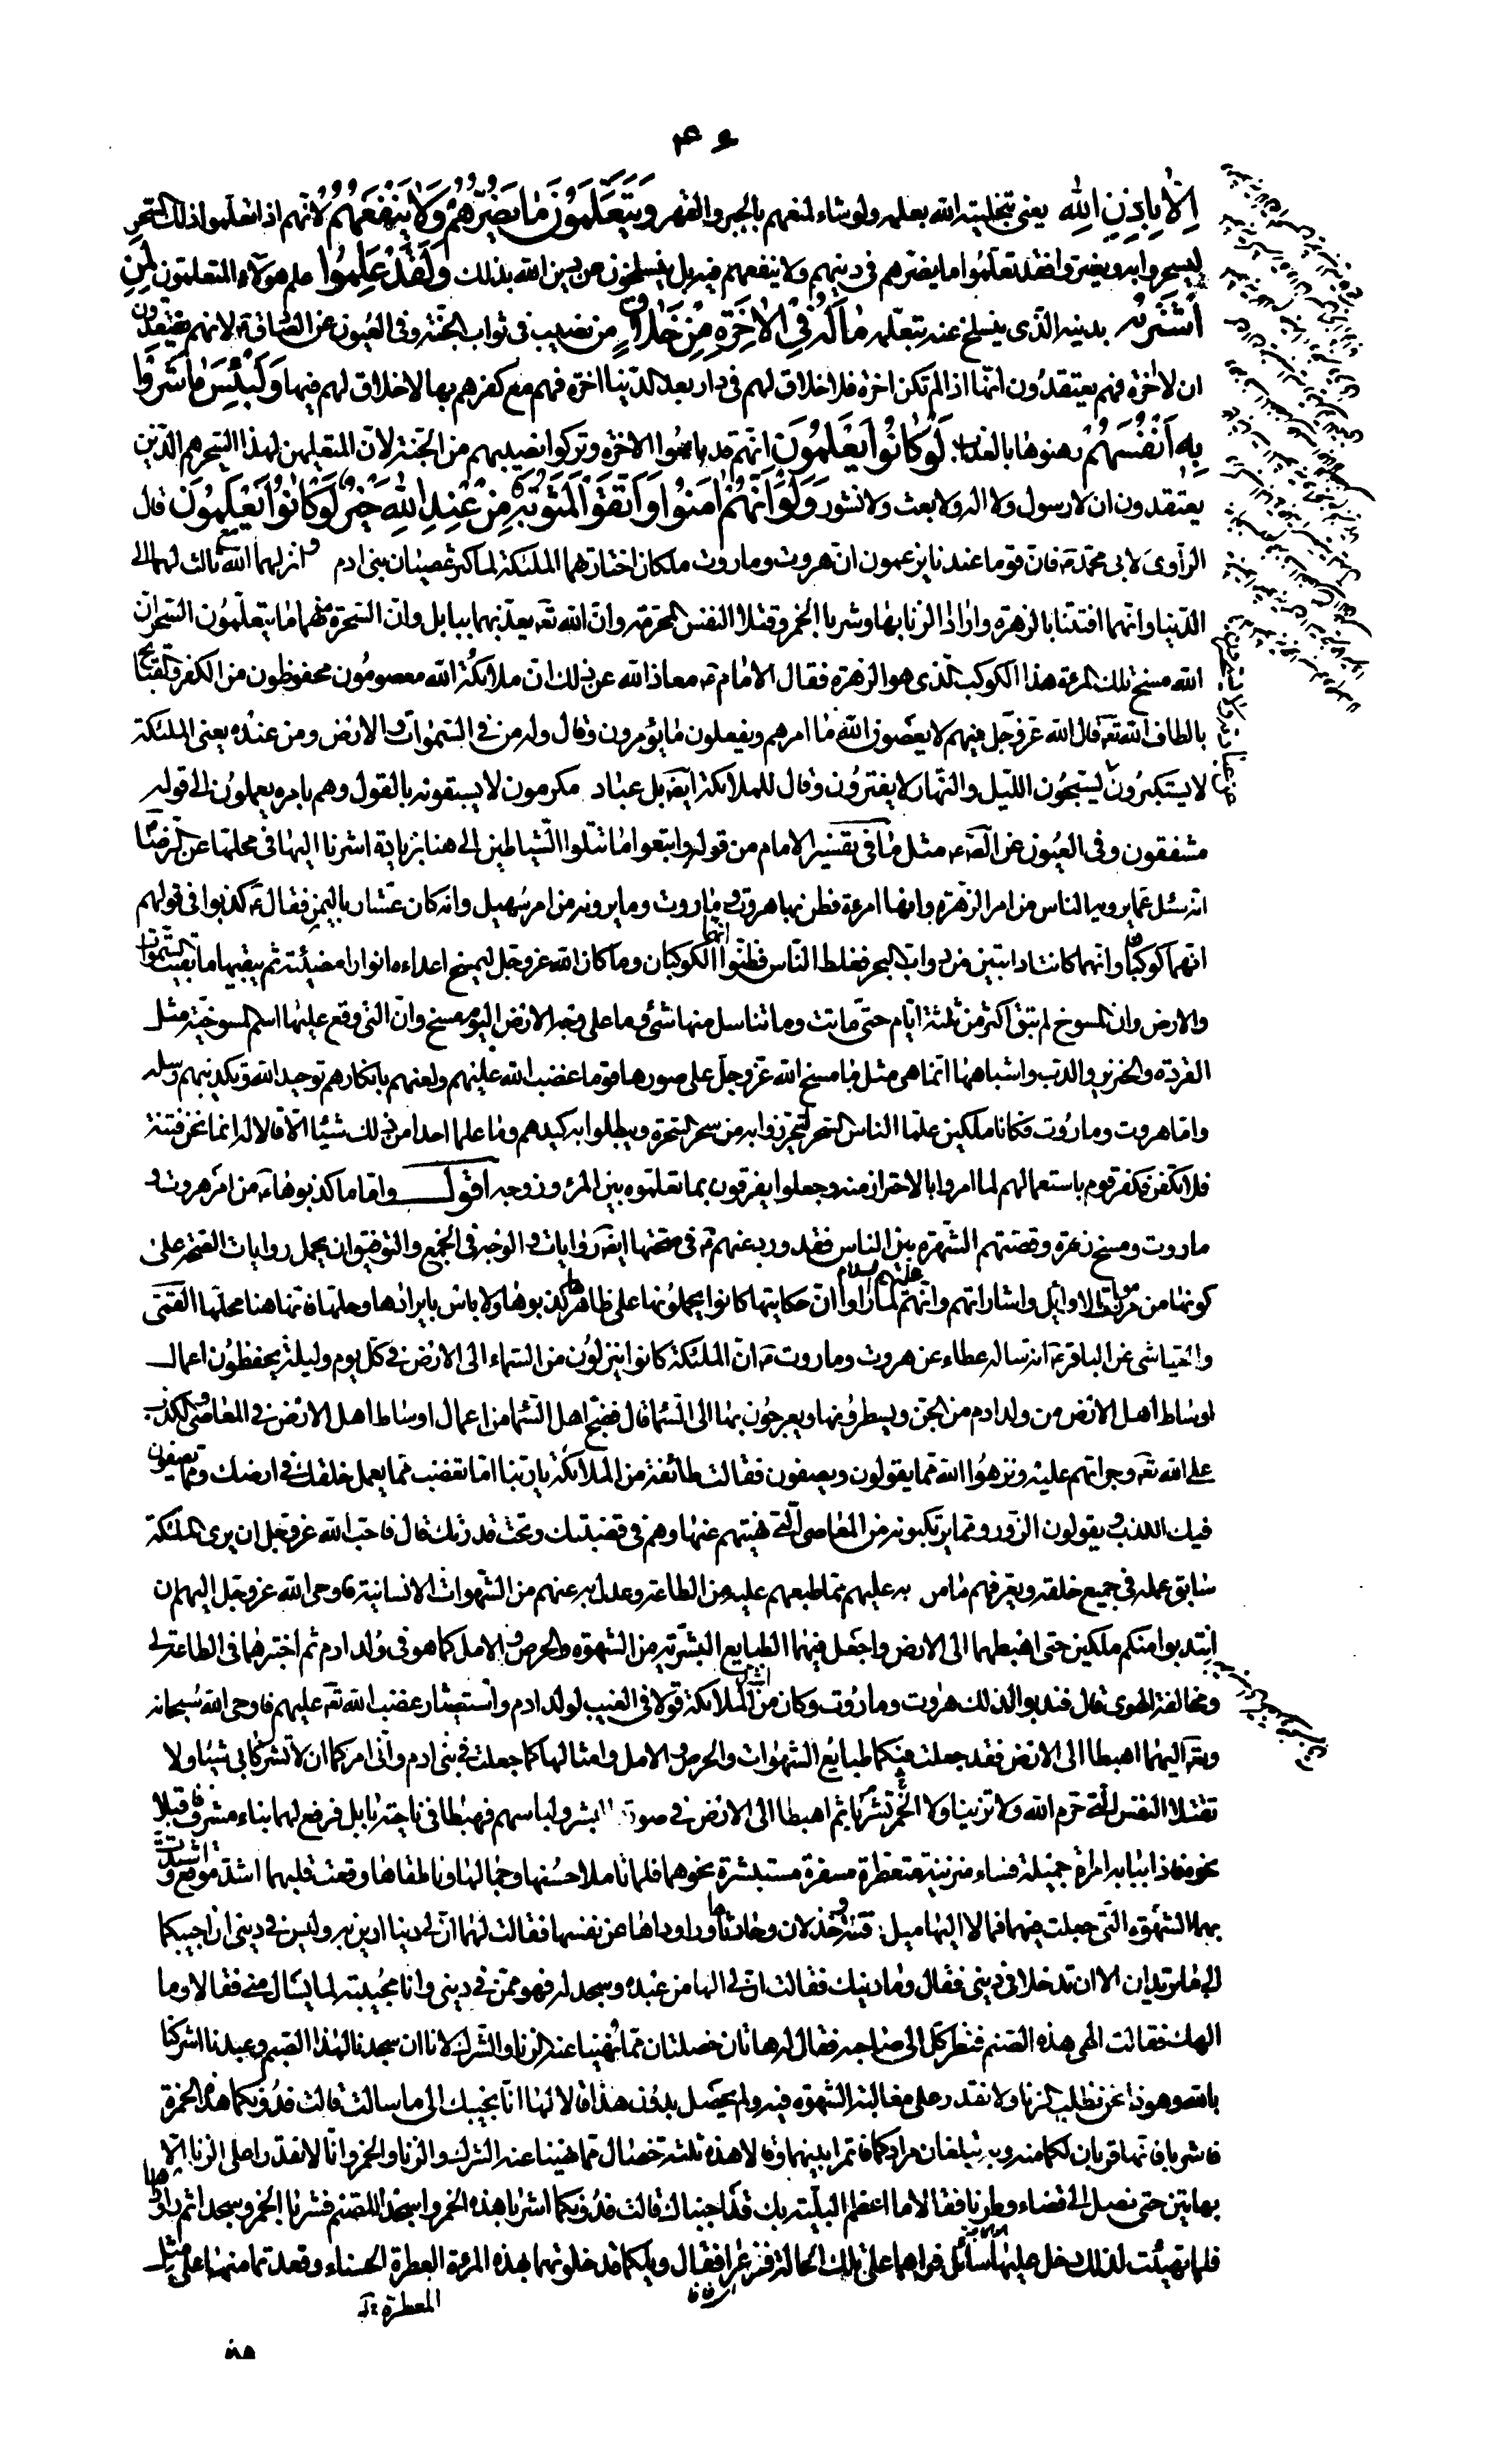 إِلَّا بِإِذْنِ اللهِ يعنى بتخليته الله بعلمه ولو شاء لمنعهم بالجبر والقهر وَيَتَعَلَّمُونَ مَا يَضُرُّهُمْ وَلَا يَنْفَعُهُمْ لانهم اذا تعلموا ذلك السحر
ليسحروا به ويضروا فقد تعلموا ما يضرهم فى دينهم ولا ينفعهم فيه بل ينسلخون عن دين الله بذلك وَلَقَدْ عَلِمُوا علم هؤلاء المتعلمون لَمَنِ
اشْتَرَيهُ بدينه الذى ينسلخ عنه بتعلمه مَا لَهُ فِى الْآخِرَةِ مِنْ خَلَاقٍ من نصيب فى ثواب الجنة وفى العيون عن الصادق ع لانهم يعتقدون
ان لا اخرة فهم يعتقدون انها اذا لم تكن اخرة فلا خلاق لهم فى دار بعد الدنيا وان كانت بعد الدنيا اخرة فهم مع كفرهم بها لا خلاق لهم فيها وَلَبِئْسَ مَا شَرَوْا
بِهِ أَنْفُسَهُمْ رهنوها بالعذاب لَوْ كَانُوا يَعْلَمُونَ انهم قد باعوا الاخرة وتركوا نصيبهم من الجنة لان المتعلمين لهذا السحر هم الذين
يعتقدون ان لا رسول ولا اله ولا بعث ولا نشور وَلَوْ أَنَّهُمْ آمَنُوا وَاتَّقَوْا لَمَثُوبَةٌ مِنْ عِنْدِ اللهِ خَيْرٌ لَوْ كَانُوا يَعْلَمُونَ قال
الراوى لابى محمد ع فان قوما عندنا يزعمون ان هروت وماروت ملكان اختارتهما الملئكة لما كثر عصيان بنى ادم وانزلهما الله مع ثالث لهما الى
الدنيا وانهما افتتنا بالزهرة وارادا الزنا بها وشربا الخمر وقتلا النفس المحرمة وان الله تعه يعذبهما ببابل وان السحرة منهما يتعلمون السحر وان
الله مسخ تلك المرءة هذا الكوكب الذى هو الزهرة فقال الامام ع معاذ الله عن ذلك ان ملائكة الله معصومون محفوظون من الكفر والقبائح
بالطاف الله تعه قال الله عز وجل فيهم لا يعصون الله ما امرهم ويفعلون ما يؤمرون وقال وله من فى السموات والارض ومن عنده يعنى الملئكة
لا يستكبرون يسبحون الليل والنهار لا يفترون وقال للملائكة ايضا بل عباد مكرمون لا يسبقونه بالقول وهم بامره يعملون الى قوله
مشفقون وفى العيون عن الصم ع مثل ما فى تفسير الامام من قوله واتبعوا ما تتلوا الشياطين الى هنا بزيادة اشرنا اليها فى محلها عن الرضا
انه سئل عما يرويه الناس من امر الزهرة وانها امرءة فطن بها هروت وماروت وما يروونه من امر سهيل وانه كان عشارا باليمن فقال ع كذبوا فى قولهم
انهما كوكبان وانهما كانتا دابتين من دواب البحر فغلط الناس فظنوا انهما الكوكبان وما كان الله عز وجل ليمسخ اعداءه انوارا مضيئة ثم يبقيها ما بقيت السموات
والارض وان المسوخ لم تبق اكثر من ثلثة ايام حتى ماتت وما تناسل منها شئ وما على وجه الارض اليوم مسخ وان التى وقع عليها اسم المسوخية مثل
القردة والخنزير والدب واشباهها انما هى مثل ما مسخ الله عز وجل على صورها قوما غضب الله عليهم ولعنهم بانكارهم توحيد الله وتكذيبهم رسله
واما هروت وماروت فكانا ملكين علما الناس السحر ليتحرزوا به من سحر السحرة ويبطلوا به كيدهم وما علما احدا من ذلك شيئا الا قالا له انما نحن فتنة
فلا تكفر فكفر قوم باستعمالهم لما امروا بالاحتراز منه وجعلوا يفرقون بما تعلموه بين المرء وزوجه اقول واما ما كذبوهاء من امر هروت و
ماروت ومسخ زهرة وقصتهم المشتهرة بين الناس فقد ورد عنهم ع فى صحتها ايضا روايات والوجه فى الجمع والتوفيق ان يحمل روايات الصحة على
كونها من مرموزات الاوايل واشاراتهم وانهم عليهم السلام لما راوا ان حكايتها كانوا يحملونها على ظاهرها كذبوها ولا باس بايرادها وحلها فانها هنا محلها القمى
والعياشى عن الباقر ع انه ساله عطاء عن هروت وماروت ع ان الملئكة كانوا ينزلون من السماء الى الارض فى كل يوم وليلة يحفظون اعمال
اوساط اهل الارض من ولد ادم من الجن ويسطرونها ويعرجون بها الى السماء قال فضج اهل السماء من اعمال اوساط اهل الارض فى المعاصى والكذب
على الله تعه وجراتهم عليه ونزهوا الله مما يقولون ويصفون فقالت طائفة من الملائكة يا ربنا اما تغضب مما يعمل خلقك فى ارضك ومما يصفون
فيك الكذب ويقولون الزور ومما يرتكبونه من المعاصى التى نهيتهم عنها وهم فى قبضتك وتحت قدرتك قال فاحب الله عز وجل ان يرى الملئكة
سابق علمه فى جميع خلقه ويعرفهم ما من به عليهم مما طبعهم عليه من الطاعة وعدل به عنهم من الشهوات الانسانية فاوحى الله عز وجل اليهم ان
انتدبوا منكم ملكين حتى اهبطهما الى الارض واجعل فيهما الطبايع البشرية من الشهوة والحرص والامل كما هو فى ولد ادم ثم اختبرهما فى الطاعة لى
ومخالفة الهوى قال فندبوا لذلك هروت وماروت وكان من اشد الملائكة قولا فى العيب لولد ادم واستيثار غضب الله تعه عليهم فاوحى الله سبحانه
وتعه اليهما اهبطا الى الارض فقد جعلت فيكما طبايع الشهوات والحرص والامل وامثالها كما جعلت فى بنى ادم وانى امركما ان لا تشركا بى شيئا ولا
تقتلا النفس التى حرم الله ولا تزنيا ولا تشربا الخمر ثم اهبطا الى الارض فى صورة البشر ولباسهم فهبطا فى ناحية بابل فرفع لهما بناء مشرف فاقبلا
نحوه فاذا ببابه امراة جميلة حسناء مزينة متعطرة مسفرة مستبشرة نحوهما فلما تاملا حسنها وجمالها وناطقاها وقعت فى قلبهما اشد موقع واشتدت
بهما الشهوة التى جعلت فيهما فمالا اليها ميل فتنة وخذلان وحادثاها وراوداها عن نفسها فقالت لهما ان لى دينا ادين به وليس فى دينى ان اجيبكما
الى ما تريدان الا ان تدخلا فى دينى فقالا وما دينك فقالت ان لى الها من عبده وسجد له فهو ممن فى دينى وانا مجيبته لما يسال منى فقالا وما
الهك فقالت الهى هذه الصنم فنظر كل الى صاحبه فقال له هاتان خصلتان مما نهينا عنه الزنا والشرك لانا ان سجدنا لهذا الصنم وعبدنا اشركنا
بالله وهوذا نحن نطلب الزنا ولا نقدر على مغالبة الشهوة فيه ولم يحصل بدون هذا قالا لها انا نجيبك الى ما سالت قالت فدونكما هذه الخمرة
فاشربا فانها قربان لكما منه وبه تبلغان مرادكما فاتمرا بينهما وقالا هذه ثلثة خصال مما نهينا عنه الشرك والزنا والخمر وانا لا نقدر على الزنا الا
بهاتين حتى نصل الى قضاء وطرنا فقالا ما اعظم البلية بك قد اجبناك قالت فدونكما اشربا هذه الخمر واسجدا للصنم فشربا الخمر وسجدا ثم راوداها
فلما تهيئت لذلك دخل عليهما سائل فراهما على تلك الحالة فذعرا فقال ويلكما قد خلوتما بهذه المرءة العطرة الحسناء وقعدتما منها على مثل
المعطرة خ
هذه